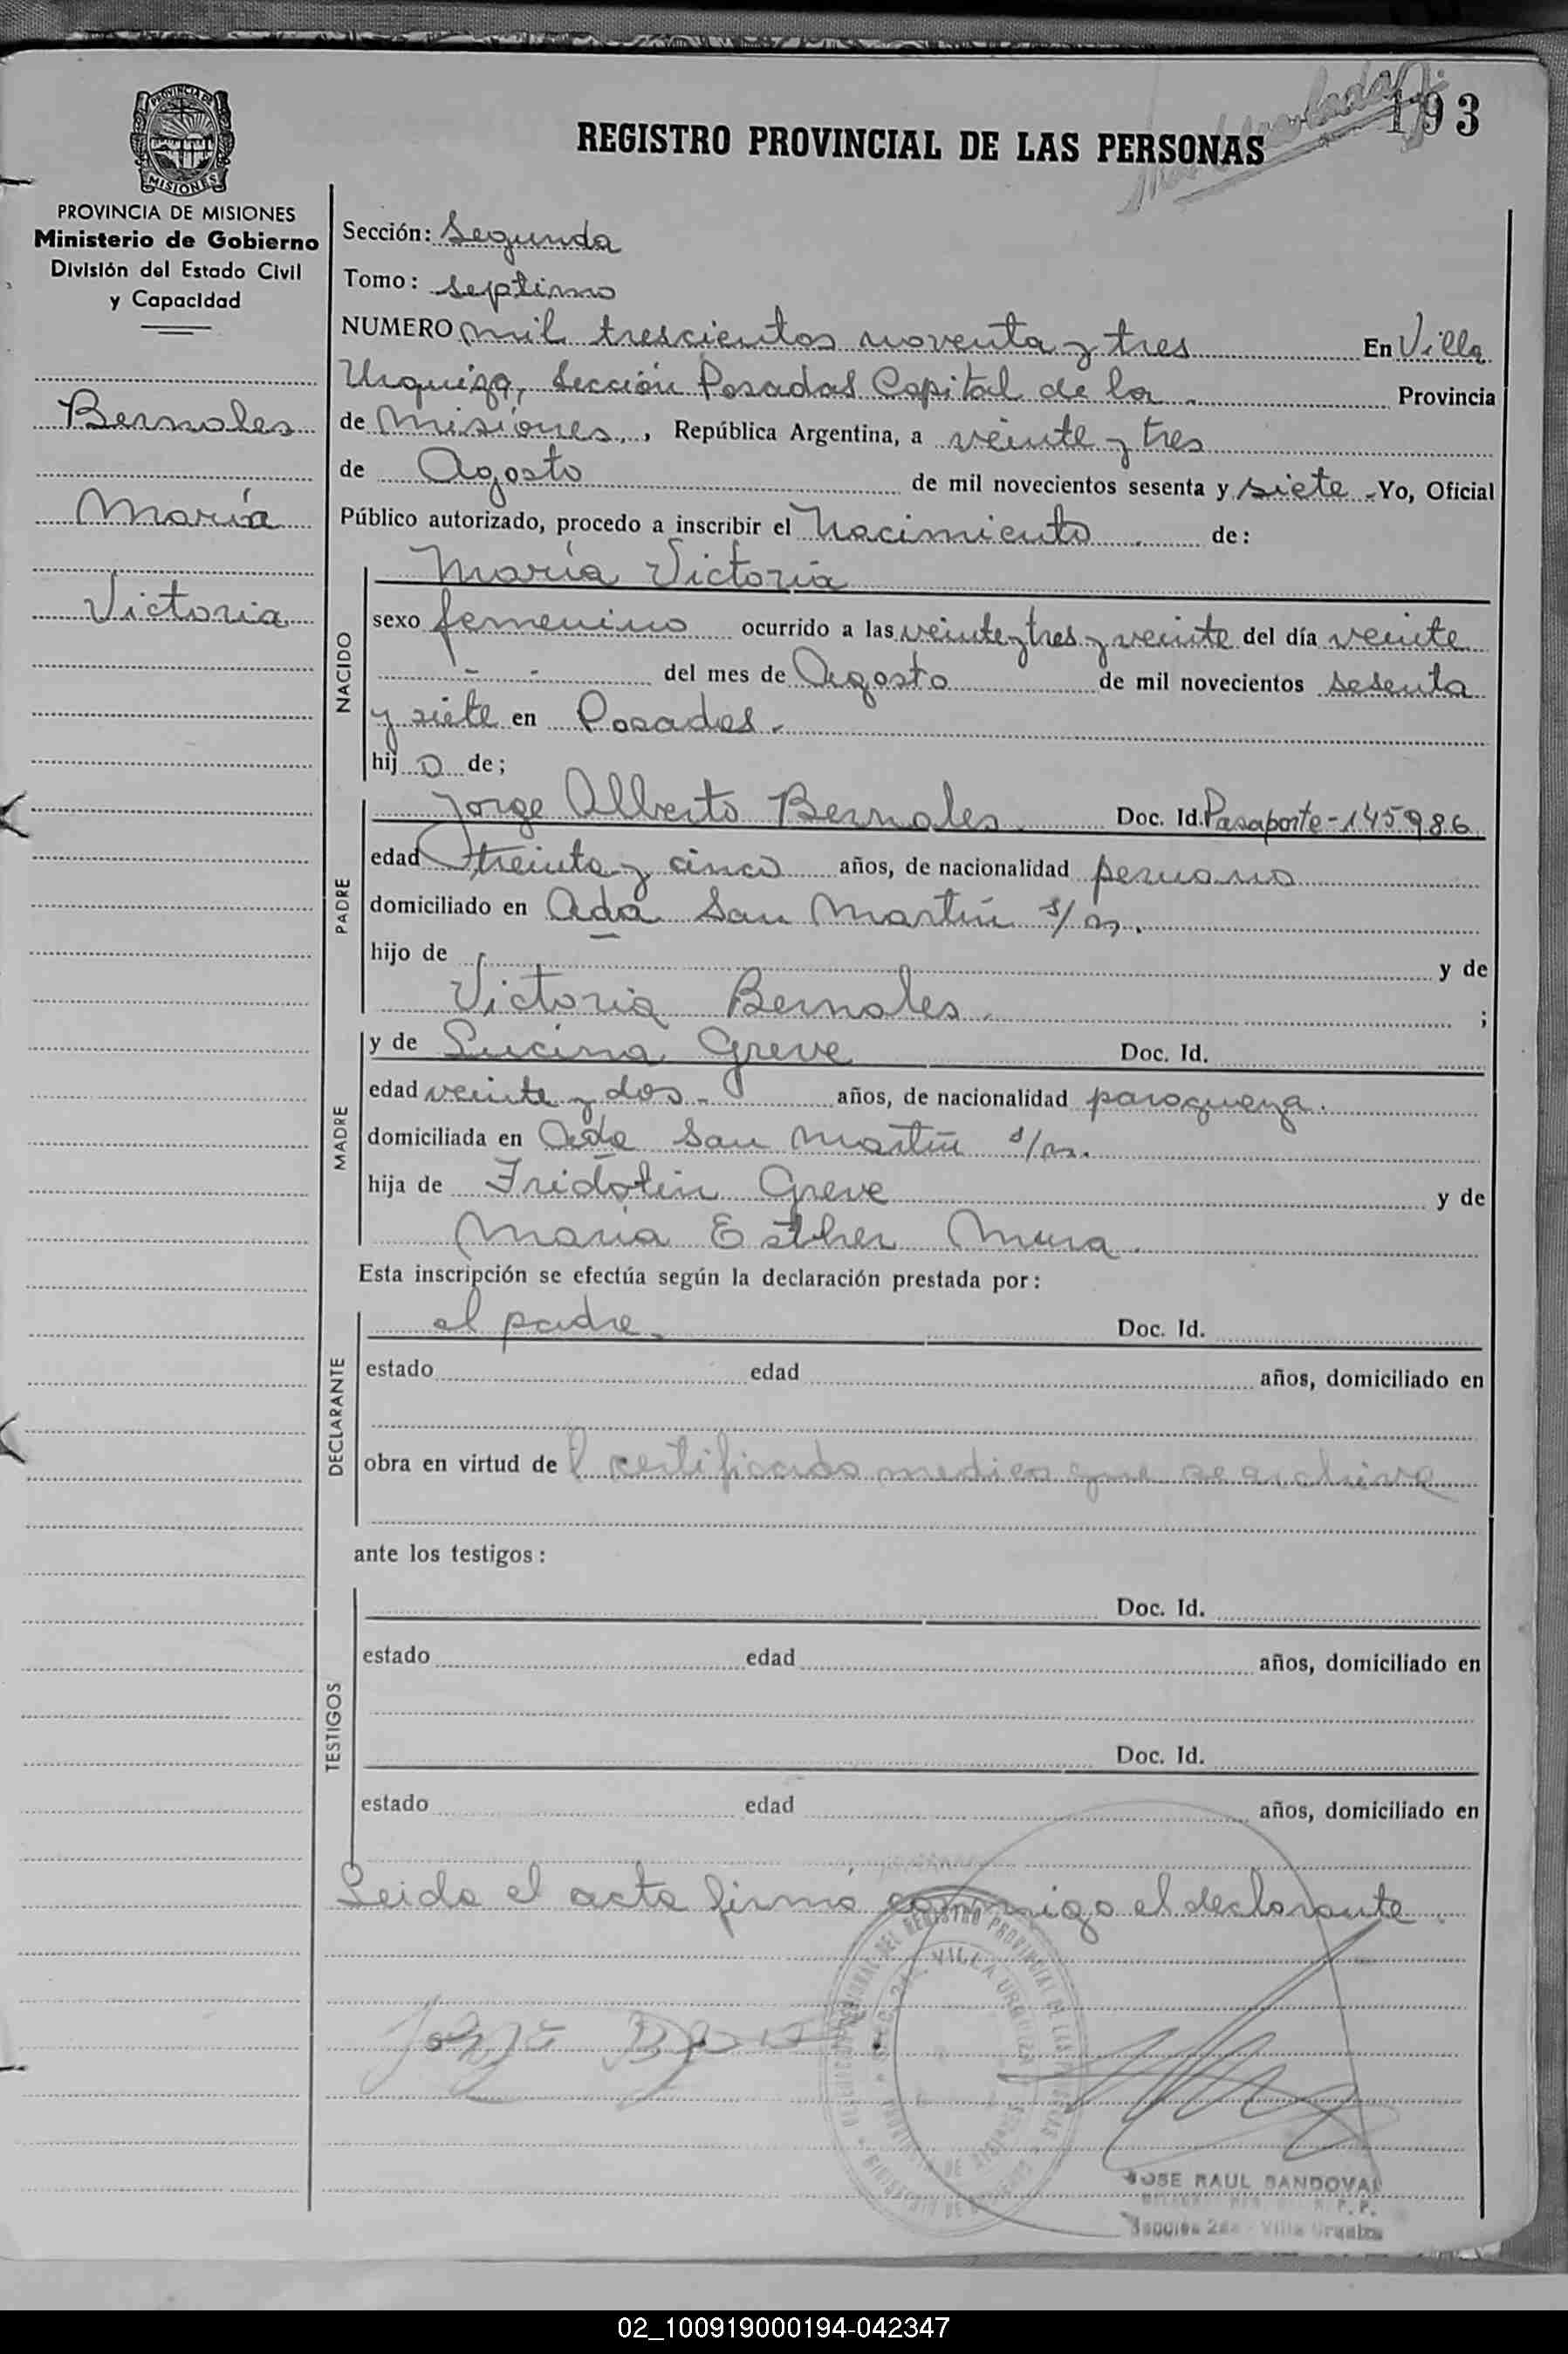 193
REGISTRO PROVINCIAL DE LAS PERSONAS
PROVINCIA DE
MISIONES
PROVINCIA DE MISIONES
Ministerio de Gobierno
División del Estado Civil
y Capacidad
Bernales
María
Victoria
Sección: Segunda
Tomo: septimo
NUMERO mil trescientos noventa y tres En Villa
Urquiza, Sección Posadas Capital de la Provincia
de Misiones, República Argentina, a veinte y tres
de Agosto de mil novecientos sesenta y siete Yo, Oficial
Público autorizado, procedo a inscribir el Nacimiento de:
NACIDO
María Victoria
sexo femenino ocurrido a las veinte y tres y veinte del día veinte
del mes de Agosto de mil novecientos sesenta
y siete en Posadas.
hij a de;
PADRE
Jorge Alberto Bernales Doc. Id. Pasaporte-145986
edad treinta y cinco años, de nacionalidad peruano
domiciliado en Avda San Martín s/n.
hijo de y de
Victoria Bernales. ;
MADRE
y de Lucina Greve Doc. Id.
edad veinte y dos - años, de nacionalidad paraguaya.
domiciliada en Avda San Martín s/n.
hija de Fridolin Greve y de
María Esther Mura.
Esta inscripción se efectúa según la declaración prestada por:
DECLARANTE
el padre. Doc. Id.
estado edad años, domiciliado en
obra en virtud de l certificado medico que se archiva
ante los testigos:
TESTIGOS
Doc. Id.
estado edad años, domiciliado en
Doc. Id.
estado edad años, domiciliado en
Leida el acta firmó conmigo el declarante.
REGISTRO PROVINCIAL DE LAS PERSONAS
VILLA URQUIZA
JOSE RAUL SANDOVAL
Sección 2da - Villa Urquiza
02_100919000194-042347